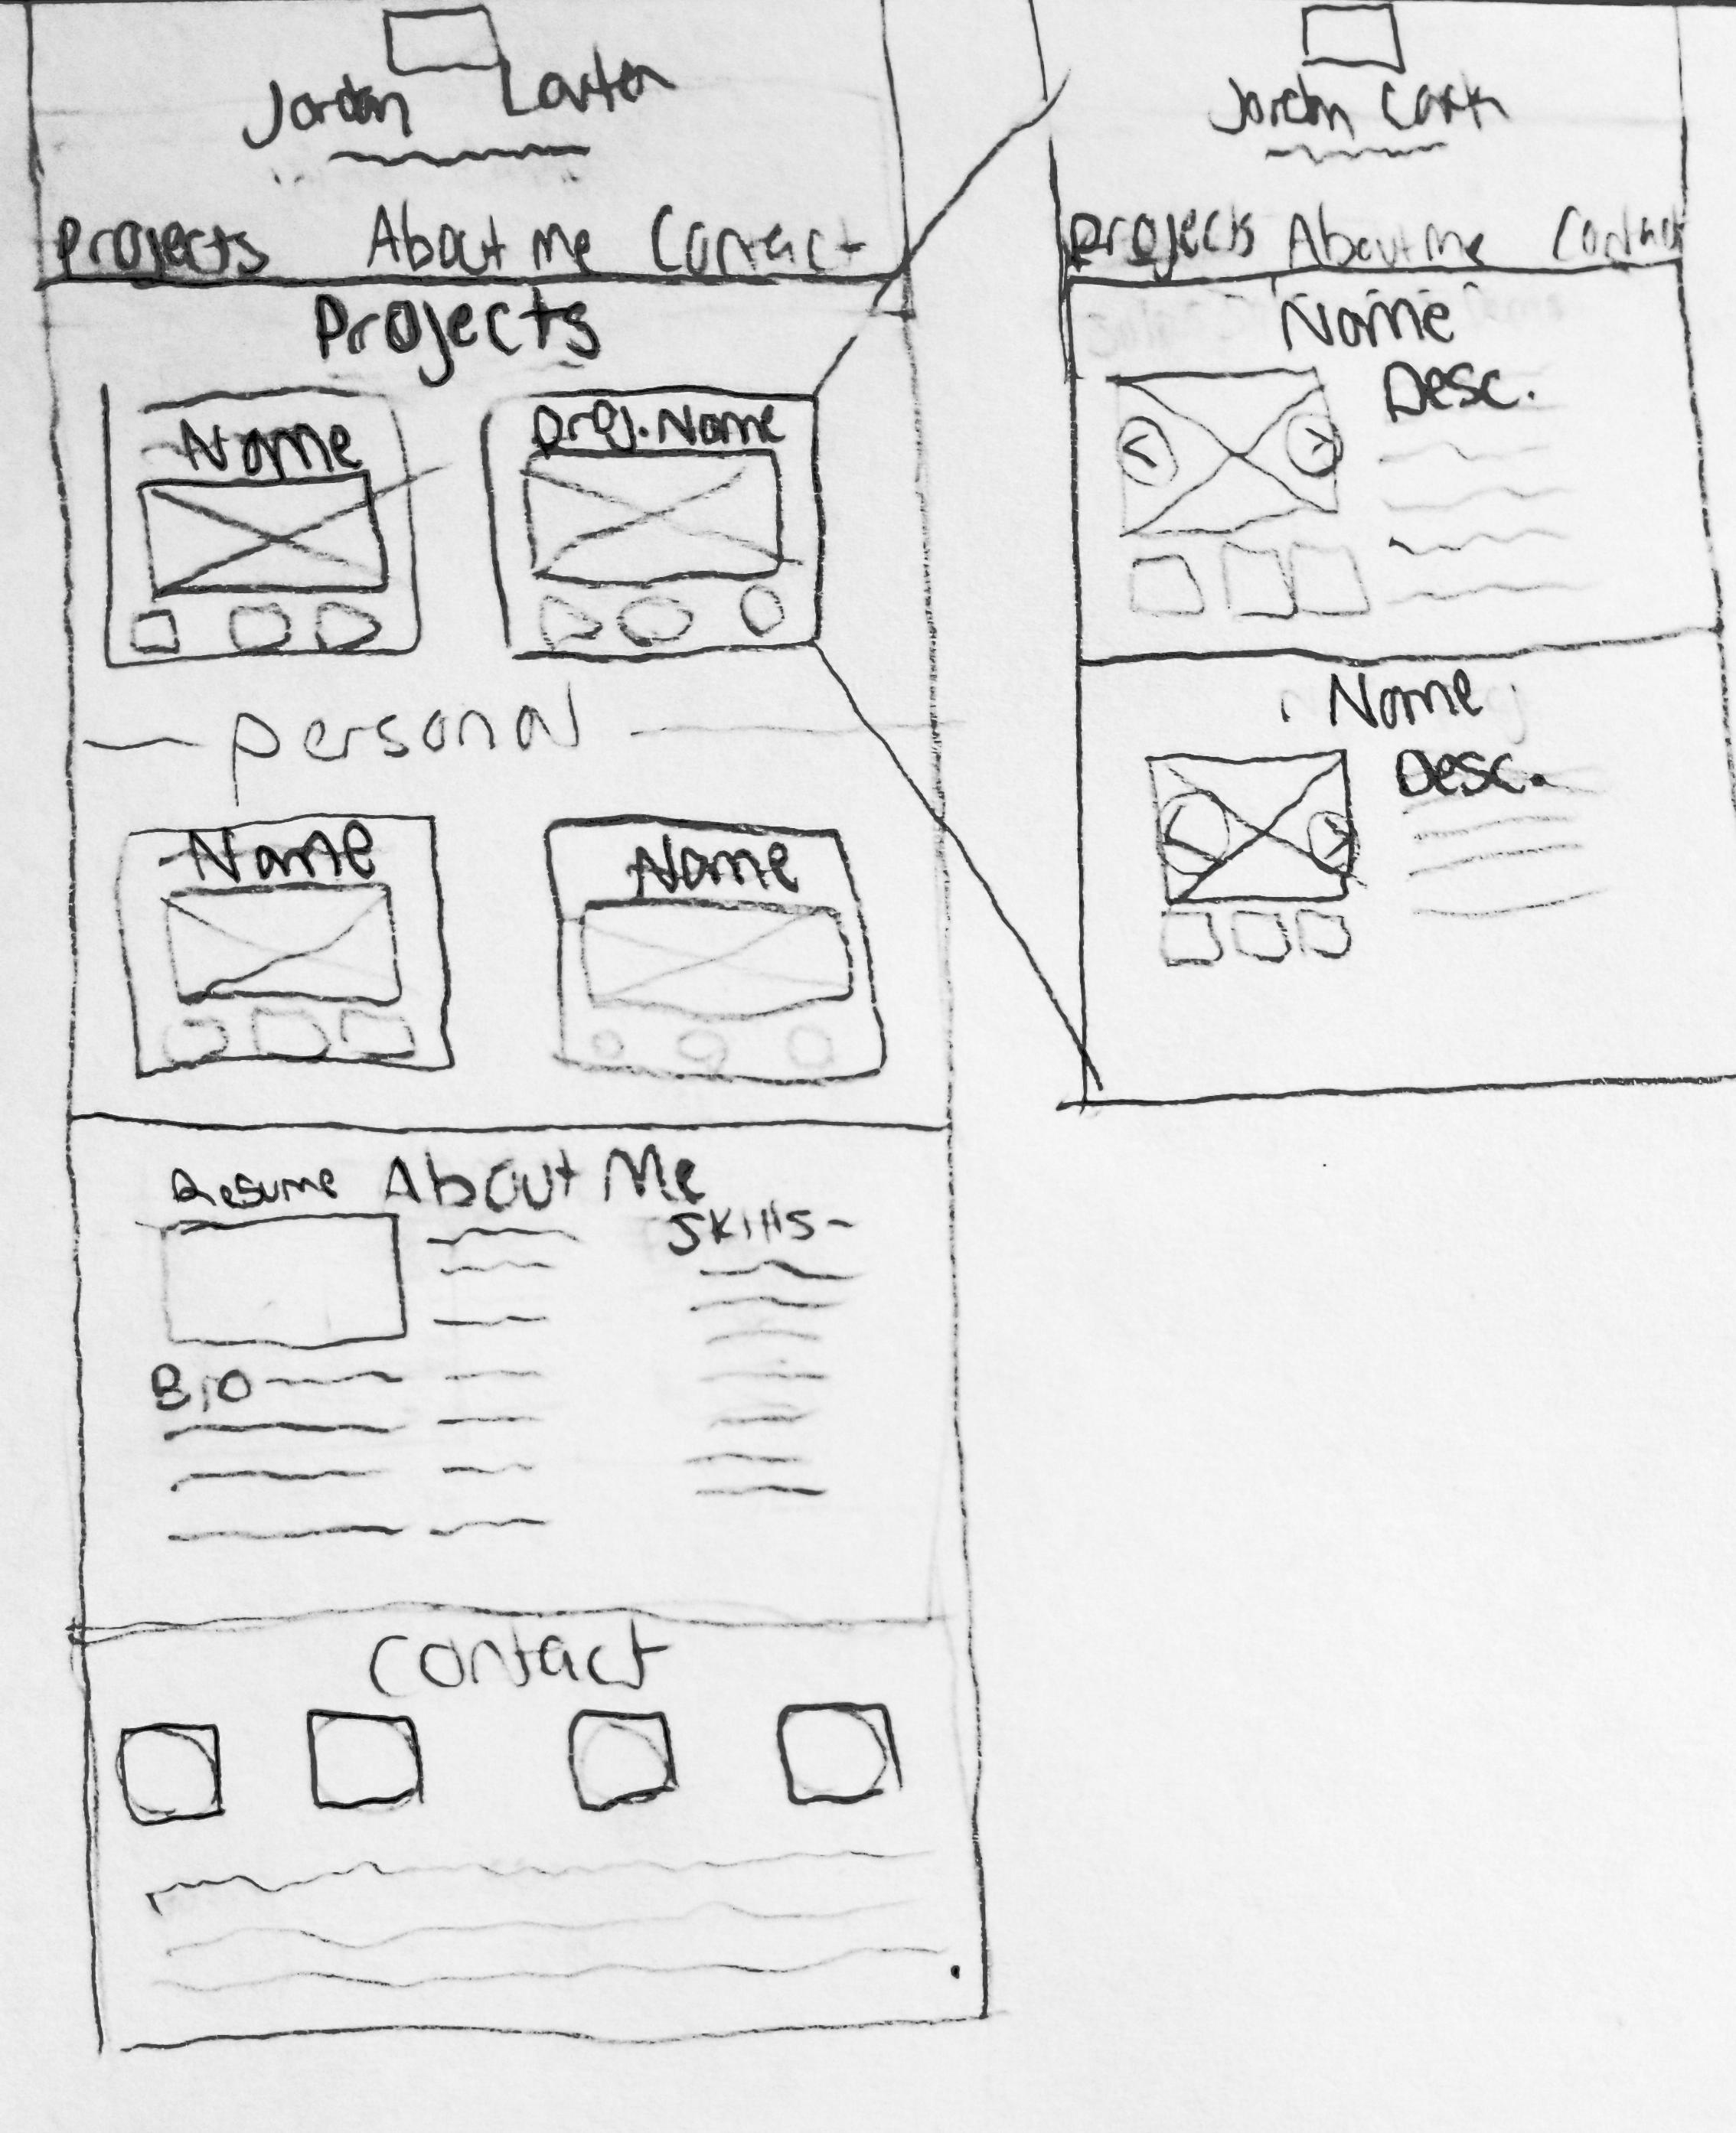 Jordan
Projects About Me Contact
Projects
Name
Proj. Name
Personal
Name
Name
Resume About Me
Skills
Bio
Contact
Jordan
Projects About Me Contact
Name
Desc.
Name
Desc.